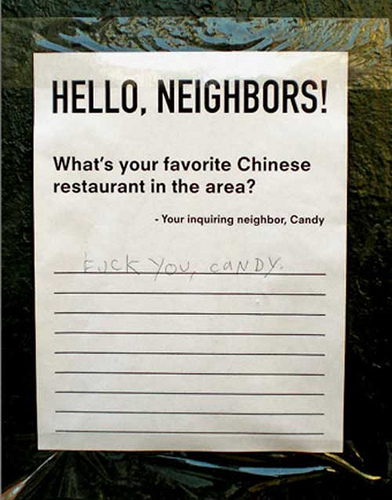 HELLO, NEIGHBORS!
What's your favorite Chinese
restaurant in the area?
- Your inquiring neighbor, Candy
FUCK YOU, CANDY.